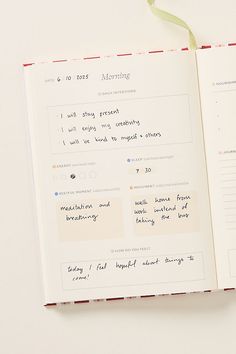 DATE 6 10 2025 Morning
DAILY INTENTIONS
I will stay present
I will enjoy my creativity
I will be kind to myself + others
ENERGY
SLEEP
7 30
RESTFUL MOMENT
MOVEMENT
meditation and
breathing
walk home from
work instead of
taking the bus
HOW DO YOU FEEL?
today I feel hopeful about things to
come!